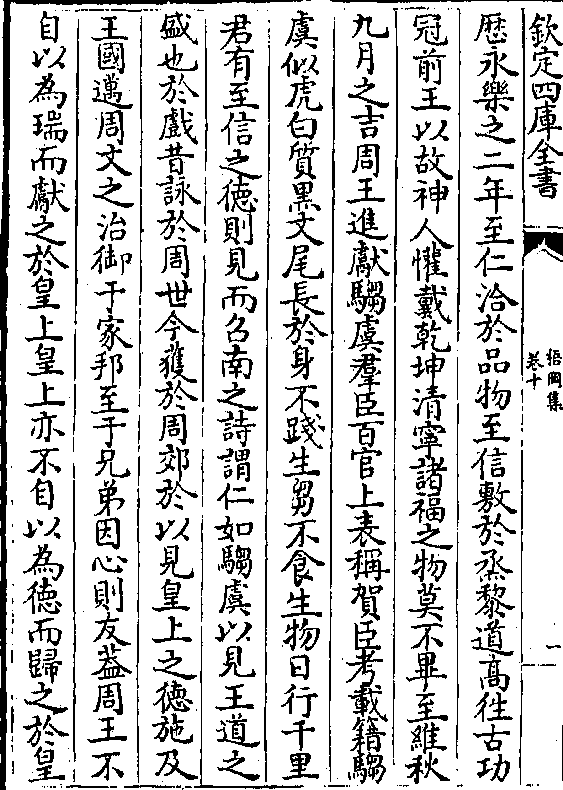 欽定四庫全書
梧岡集
卷十
一
歴永樂之二年至仁洽於品物至信敷於烝黎道髙徃古功
冠前王以故神人懽戴乾坤清寧諸福之物莫不畢至維秋
九月之吉周王進獻騶虞羣臣百官上表稱賀臣考載籍騶
虞似虎白質黒文尾長於身不踐生芻不食生物日行千里
君有至信之德則見而召南之詩謂仁如騶虞以見王道之
盛也於戲昔詠於周世今獲於周郊於以見皇上之德施及
王國邁周文之治御于家邦至于兄弟因心則友葢周王不
自以為瑞而獻之於皇上皇上亦不自以為德而歸之於皇